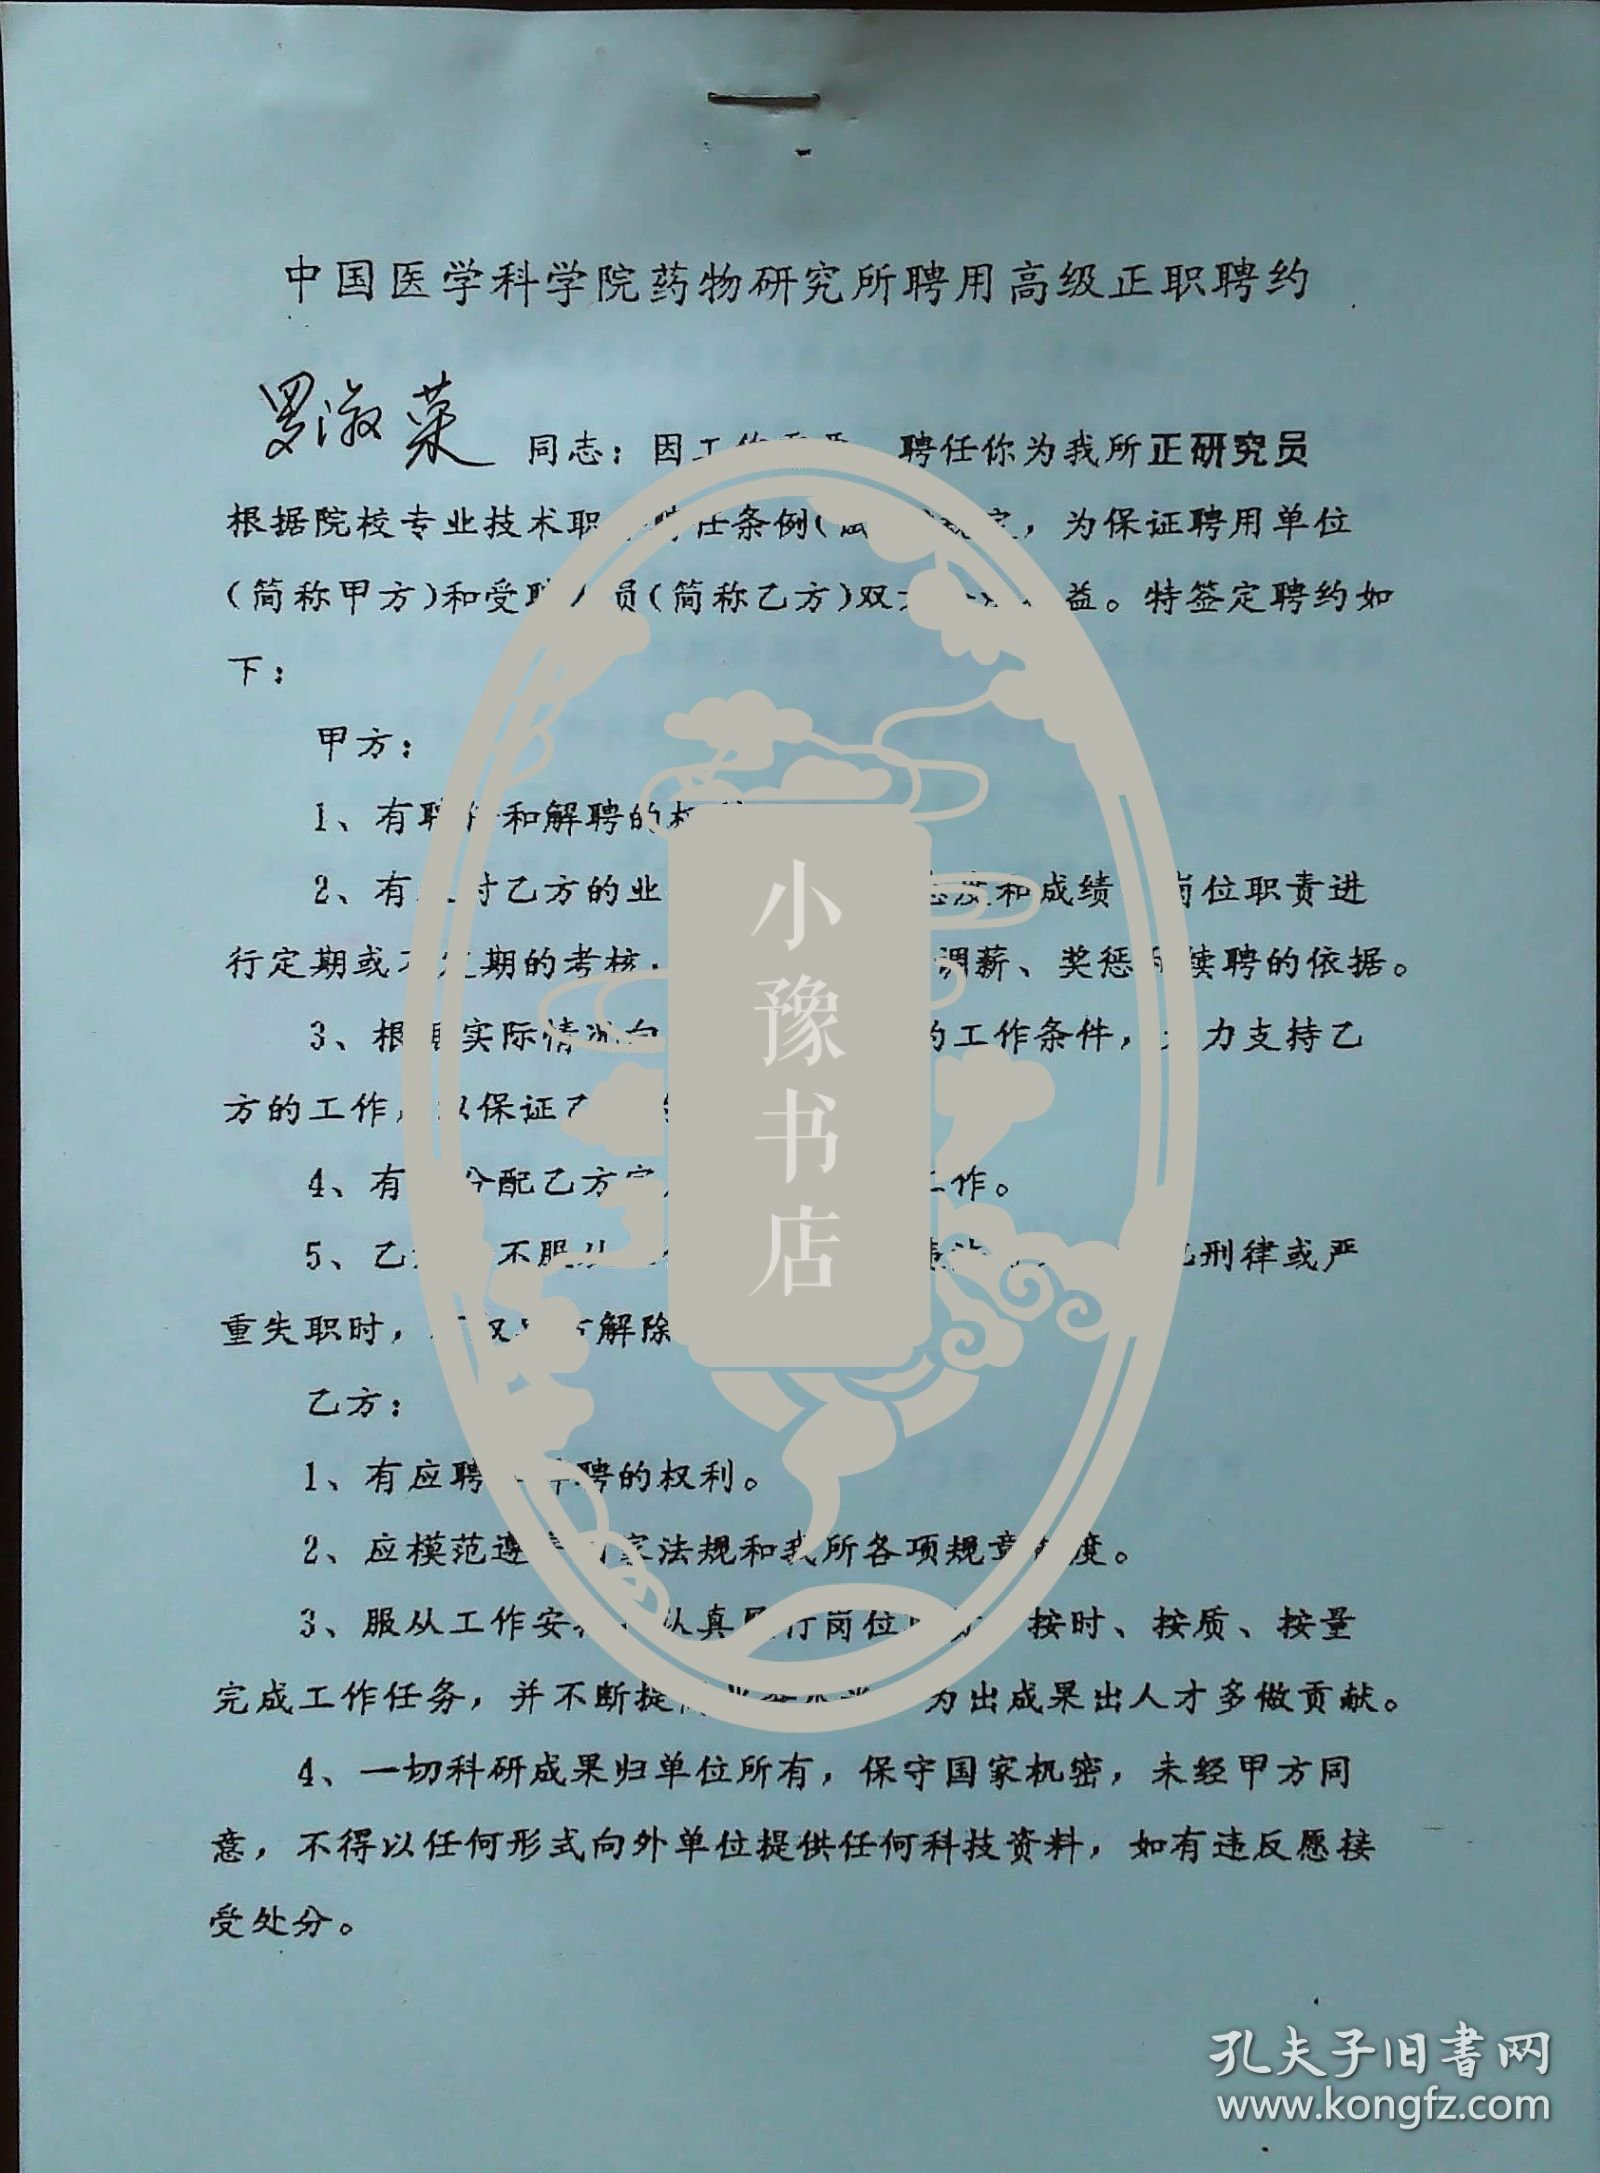 中国医学科学院药物研究所聘用高级正职聘约
罗淑荣 同志：因工作 聘任你为我所正研究员
根据院校专业技术职 任条例（ 定，为保证聘用单位
（简称甲方）和受聘 员（简称乙方）双 益。特签定聘约如
下：
甲方：
1、有聘 和解聘的权
2、有 对乙方的业 态度和成绩 岗位职责进
行定期或不定期的考核， 调薪、奖惩 续聘的依据。
3、根据实际情况向 的工作条件， 力支持乙
方的工作，以保证乙
4、有 分配乙方完 工作。
5、乙 不服从 刑律或严
重失职时， 权 方解除
乙方：
1、有应聘 聘的权利。
2、应模范遵 家法规和我所各项规章制度。
3、服从工作安 认真 行岗位 按时、按质、按量
完成工作任务，并不断提高业务水平， 为出成果出人才多做贡献。
4、一切科研成果归单位所有，保守国家机密，未经甲方同
意，不得以任何形式向外单位提供任何科技资料，如有违反愿接
受处分。
小豫书店
孔夫子旧书网
www.kongfz.com